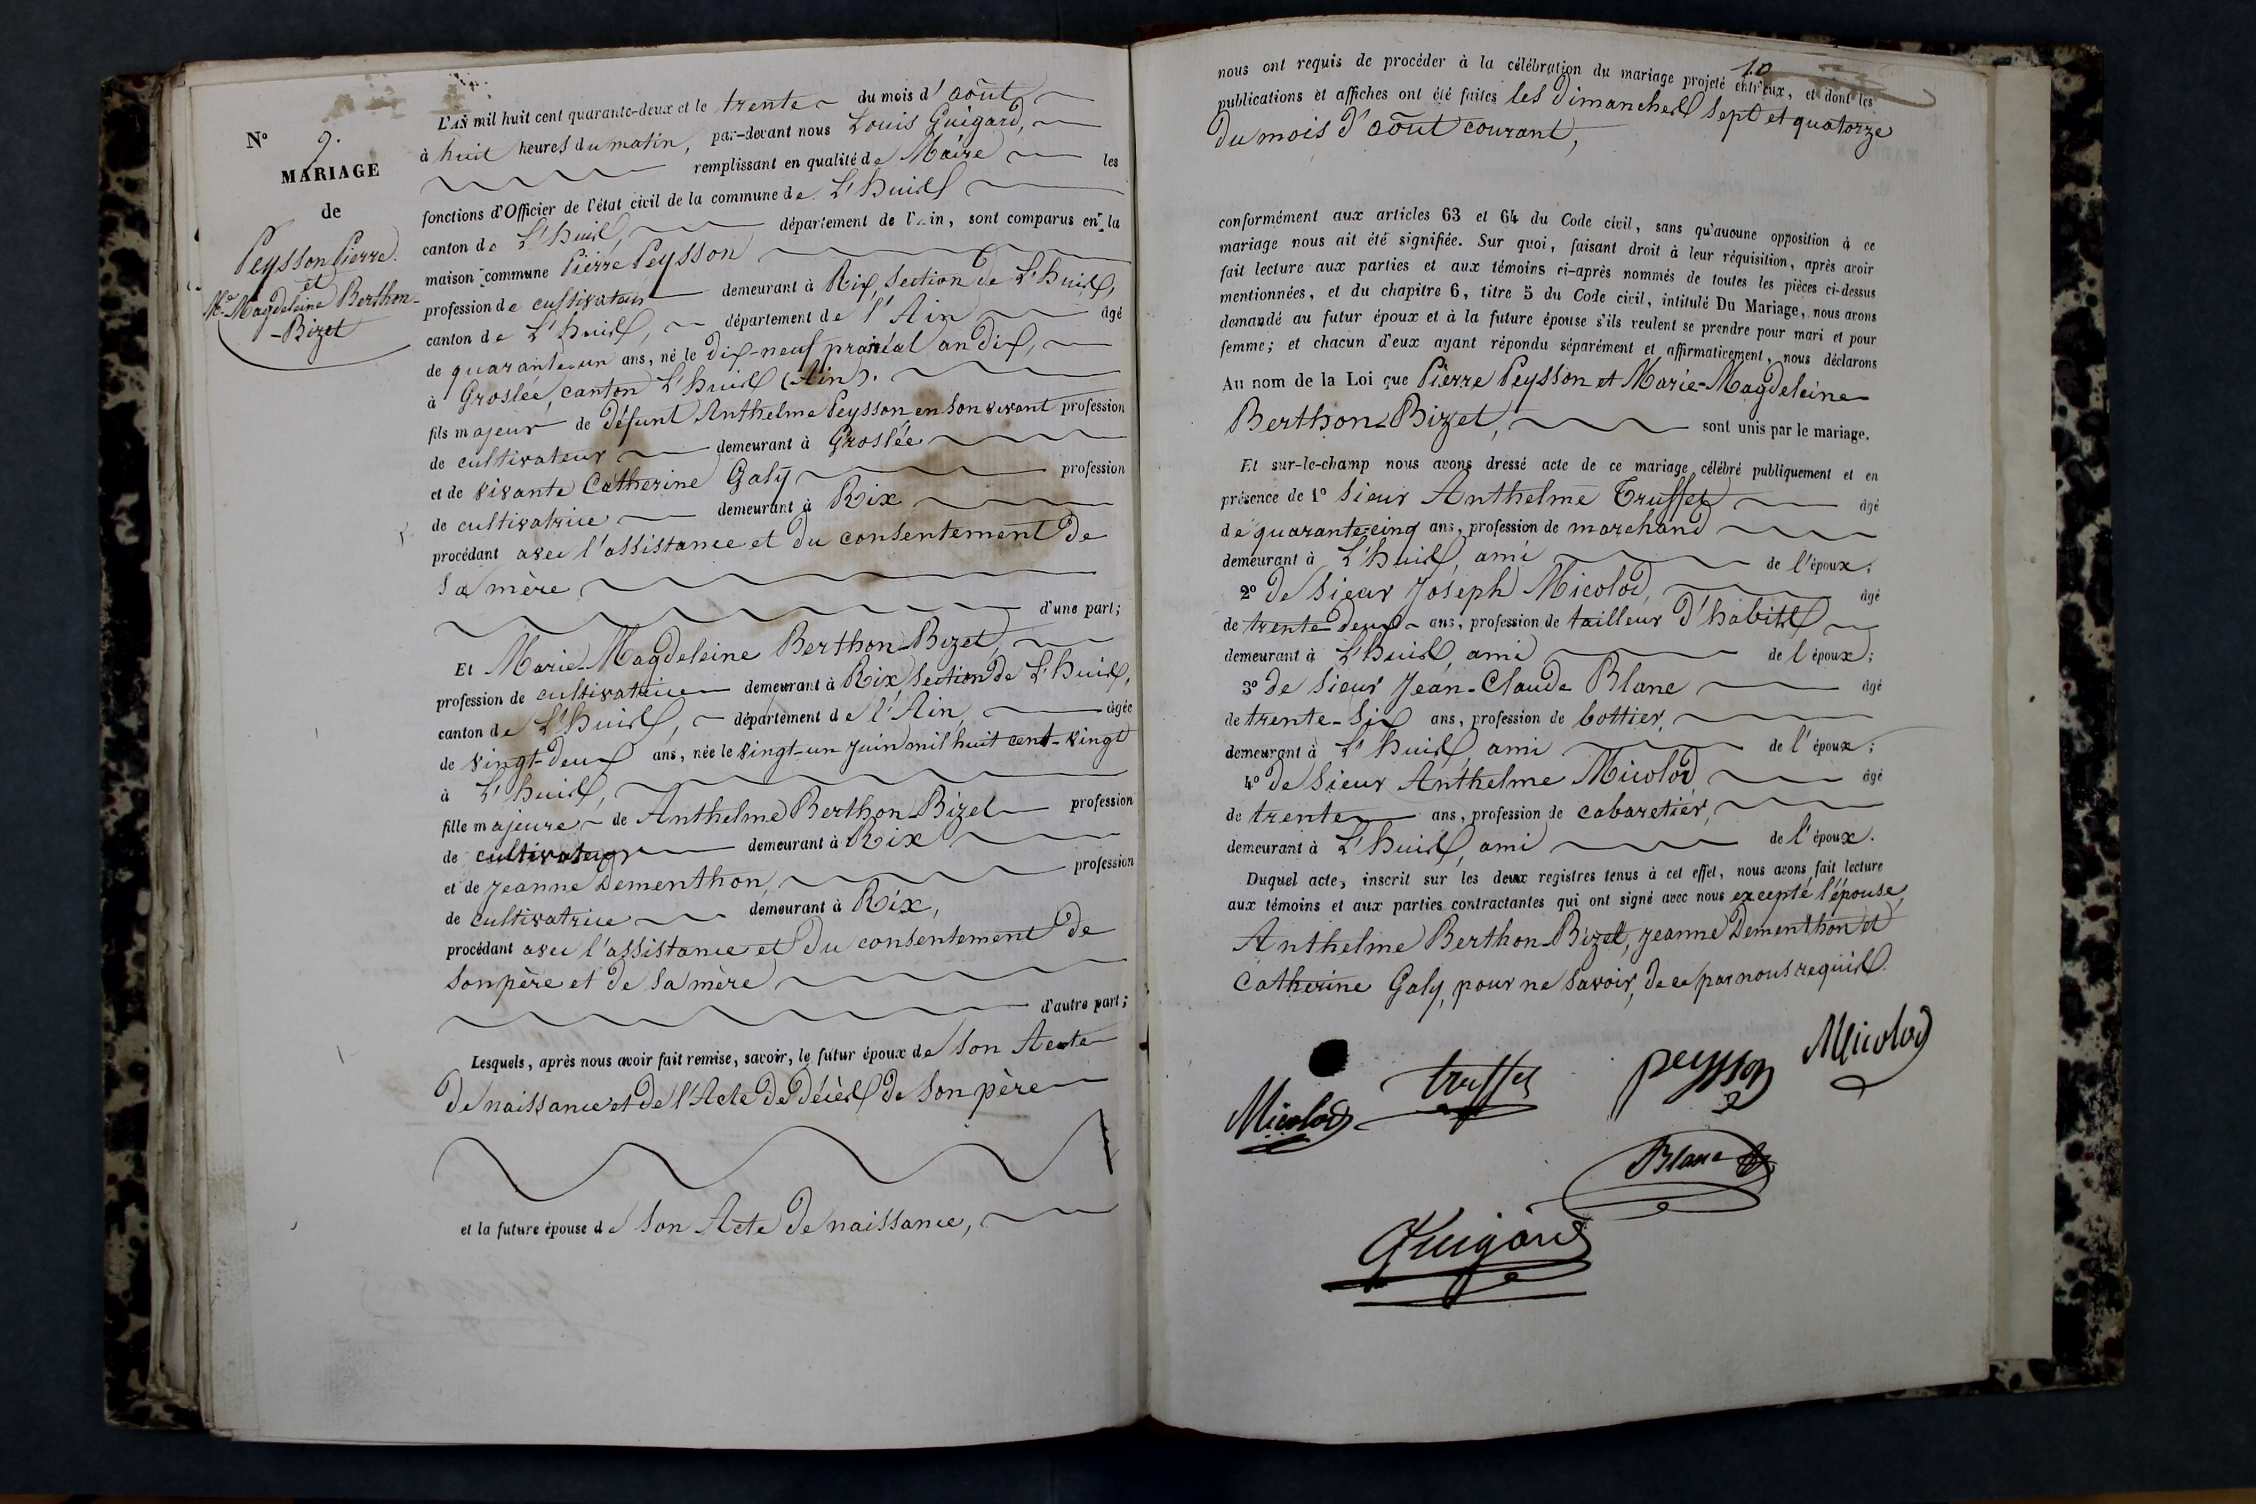 N° 9.
MARIAGE
de
Peysson Pierre
et
Mie Magdeleine Berthon-
-Bizet
L'AN mil huit cent quarante-deux et le trente du mois d'août
à huit heures du matin, par-devant nous Louis Guigard,
remplissant en qualité de Maire les
fonctions d'Officier de l'état civil de la commune de L'huis
canton de L'huis, département de l'Ain, sont comparus en la
maison commune Pierre Peysson
profession de cultivateur demeurant à Rix, section de L'huis,
canton de L'huis, département de l'Ain âgé
de quarante-un ans, né le dix-neuf prairial an dix,
à Groslée, canton L'huis (Ain).
fils majeur de défunt Anthelme Peysson en son vivant profession
de cultivateur demeurant à Groslée
et de vivante Catherine Galy profession
de cultivatrice demeurant à Rix
procédant avec l'assistance et du consentement de
sa mère
d'une part;
Et Marie-Magdeleine Berthon-Bizet,
profession de cultivatrice demeurant à Rix section de L'huis,
canton de L'huis, département de l'Ain, âgée
de vingt-deux ans, née le vingt-un juin mil huit cent-vingt
à L'huis,
fille majeure de Anthelme Berthon-Bizet profession
de cultivateur demeurant à Rix
et de Jeanne Dementhon, profession
de cultivatrice demeurant à Rix,
procédant avec l'assistance et du consentement de
son père et de sa mère
d'autre part;
Lesquels, après nous avoir fait remise, savoir, le futur époux de son Acte
de naissance et de l'Acte de décès de son père
et la future épouse de son Acte de naissance,
10
nous ont requis de procéder à la célébration du mariage projeté entr'eux, et dont les
publications et affiches ont été faites les dimanches sept et quatorze
du mois d'août courant,
conformément aux articles 63 et 64 du Code civil, sans qu'aucune opposition à ce
mariage nous ait été signifiée. Sur quoi, faisant droit à leur réquisition, après avoir
fait lecture aux parties et aux témoins ci-après nommés de toutes les pièces ci-dessus
mentionnées, et du chapitre 6, titre 5 du Code civil, intitulé Du Mariage, nous avons
demandé au futur époux et à la future épouse s'ils veulent se prendre pour mari et pour
femme; et chacun d'eux ayant répondu séparément et affirmativement, nous déclarons
Au nom de la Loi que Pierre Peysson et Marie-Magdeleine
Berthon-Bizet, sont unis par le mariage.
Et sur-le-champ nous avons dressé acte de ce mariage célébré publiquement et en
présence de 1° sieur Anthelme Truffet âgé
de quarante-cinq ans, profession de marchand
demeurant à L'huis, ami de l'époux;
2° de sieur Joseph Micolod, âgé
de trente-deux ans, profession de tailleur d'habits
demeurant à L'huis, ami de l'époux;
3° de sieur Jean-Claude Blanc âgé
de trente-six ans, profession de bottier,
demeurant à L'huis, ami de l'époux;
4° de sieur Anthelme Micolod âgé
de trente ans, profession de cabaretier,
demeurant à L'huis, ami de l'époux.
Duquel acte, inscrit sur les deux registres tenus à cet effet, nous avons fait lecture
aux témoins et aux parties contractantes qui ont signé avec nous excepté l'épouse,
Anthelme Berthon-Bizet, Jeanne Dementhon et
Catherine Galy, pour ne savoir, de ce par nous requis.
Micolod truffet peysson Micolod
Blanc
Guigard